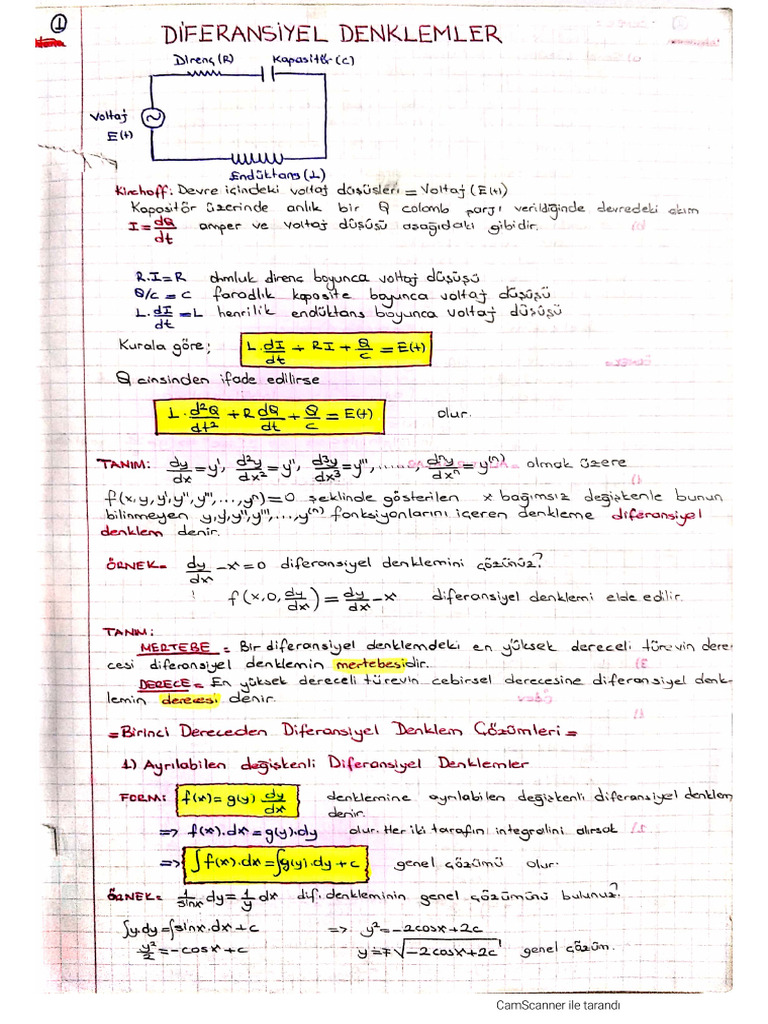 1
DİFERANSİYEL DENKLEMLER
Direnç (R) Kapasitör (C)
Voltaj
E(t)
Endüktans (L)
Kirchoff: Devre içindeki voltaj düşüşleri = Voltaj (E(t))
Kapasitör üzerinde anlık bir Q colomb parjı verildiğinde devredeki akım
I = dQ/dt amper ve voltaj düşüşü aşağıdaki gibidir.
R.I = R ohmluk direnc boyunca voltaj düşüşü
Q/c = C faradlık kapasite boyunca voltaj düşüşü
L.dI/dt = L henrilik endüktans boyunca voltaj düşüşü
Kurala göre; L.dI/dt + RI + Q/c = E(t)
Q cinsinden ifade edilirse
L.d²Q/dt² + R dQ/dt + Q/c = E(t) olur.
TANIM: dy/dx = y', d²y/dx² = y'', d³y/dx³ = y''', ......, dⁿy/dxⁿ = y⁽ⁿ⁾ olmak üzere
f(x,y,y',y'',y''',...,yⁿ)=0 şeklinde gösterilen x bağımsız değişkenle bunun
bilinmeyen y,y',y'',y''',...,y⁽ⁿ⁾ fonksiyonlarını içeren denkleme diferansiyel
denklem denir.
ÖRNEK = dy/dx - x = 0 diferansiyel denklemini çözünüz?
f(x,0,dy/dx) = dy/dx - x diferansiyel denklemi elde edilir.
TANIM:
MERTEBE = Bir diferansiyel denklemdeki en yüksek dereceli türevin dere-
cesi diferansiyel denklemin mertebesidir.
DERECE = En yüksek dereceli türevin cebirsel derecesine diferansiyel denk-
lemin derecesi denir.
= Birinci Dereceden Diferansiyel Denklem Çözümleri =
1) Ayrılabilen değişkenli Diferansiyel Denklemler
FORM: f(x) = g(y) dy/dx denklemine ayrılabilen değişkenli diferansiyel denklem
denir.
=> f(x).dx = g(y).dy olur. Her iki tarafın integralini alırsak
=> ∫f(x).dx = ∫g(y).dy + c genel çözümü olur.
ÖRNEK = 1/sinx dy = 1/y dx dif. denkleminin genel çözümünü bulunuz?
∫y.dy = ∫sinx.dx + c => y² = -2cosx + 2c
y²/2 = -cosx + c y = ∓√-2cosx + 2c genel çözüm.
CamScanner ile tarandı